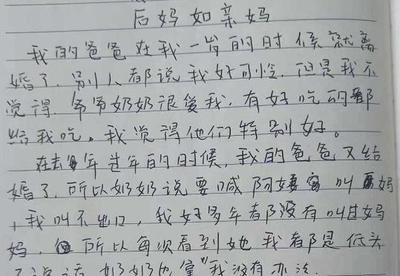 后妈如亲妈
我的爸爸在我一岁的时候就离
婚了，别人都说我好可怜，但是我不
觉得，爷爷奶奶很爱我，有好吃的都
给我吃。我觉得他们特别好。
在去年过年的时候，我的爸爸又结
婚了，所以奶奶说要喊阿姨 叫 妈
，我叫不出口，我好多年都没有叫过妈
妈，所以每次看到她我都是低头
不说话，奶奶也拿我没有办法